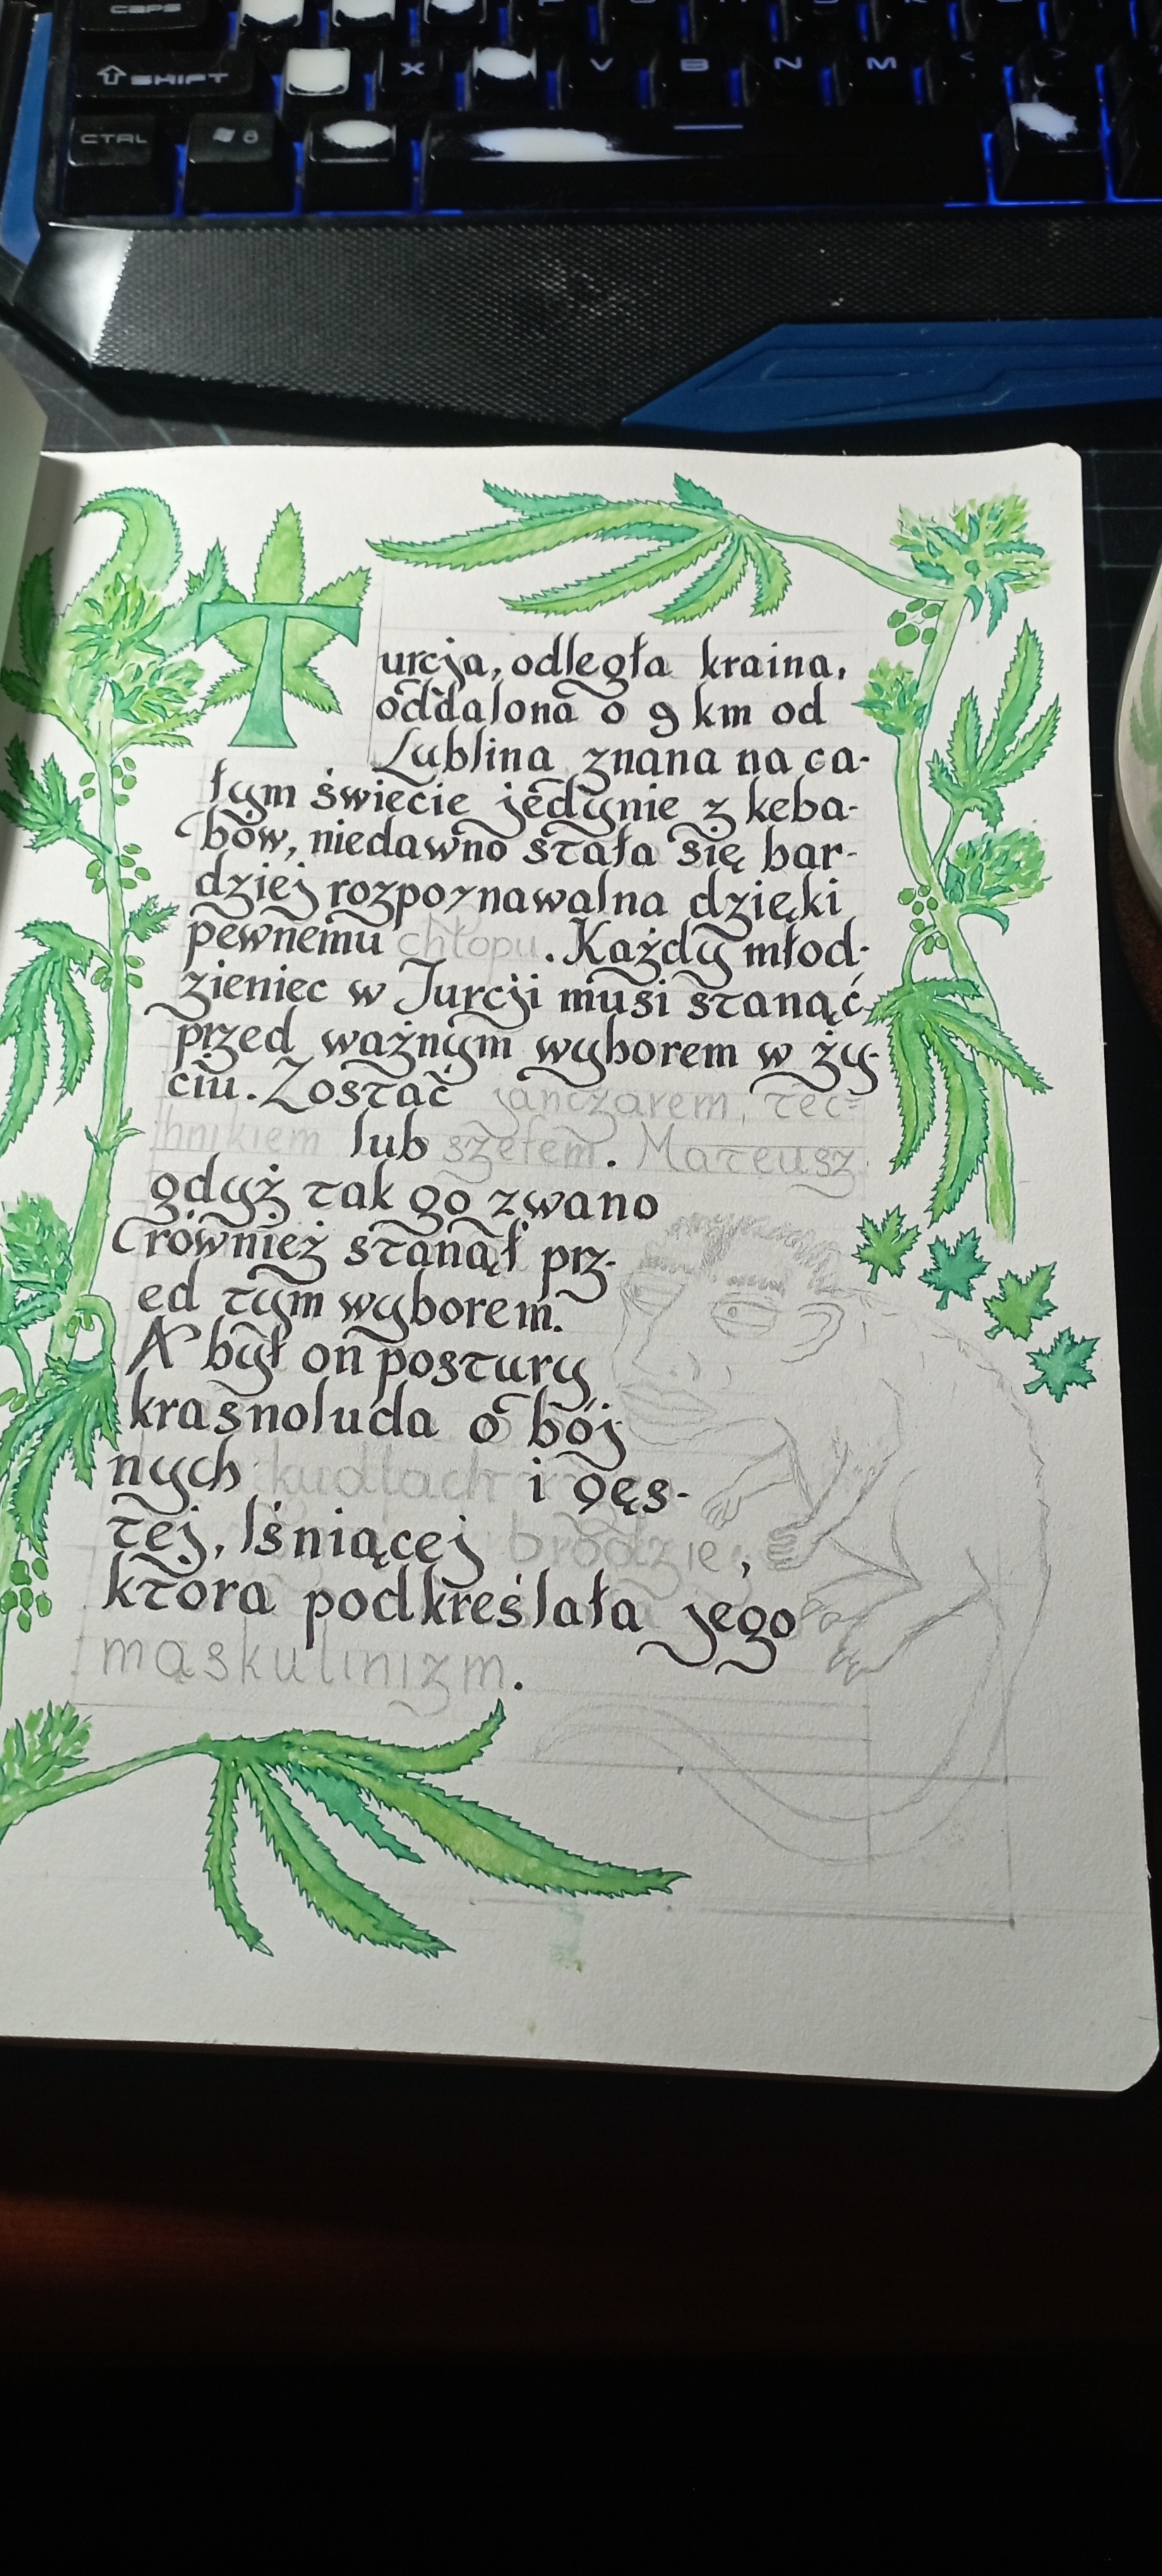 CAPS
SHIFT X V B N M < >
CTRL
Turcja, odległa kraina,
oddalona o 9 km od
Lublina znana na ca-
łym świecie jedynie z keba-
bów, niedawno stała się bar-
dziej rozpoznawalna dzięki
pewnemu chłopu. Każdy młod-
zieniec w Turcji musi stanąć
przed ważnym wyborem w ży-
ciu. Zostać janczarem, tec-
hnikiem lub szefem. Mateusz
gdyż tak go zwano
również stanął prz-
ed tym wyborem.
A był on postury
krasnoluda o bój
nych kudłach i gęs-
tej, lśniącej brodzie,
ktora podkreślała jego
maskulinizm.